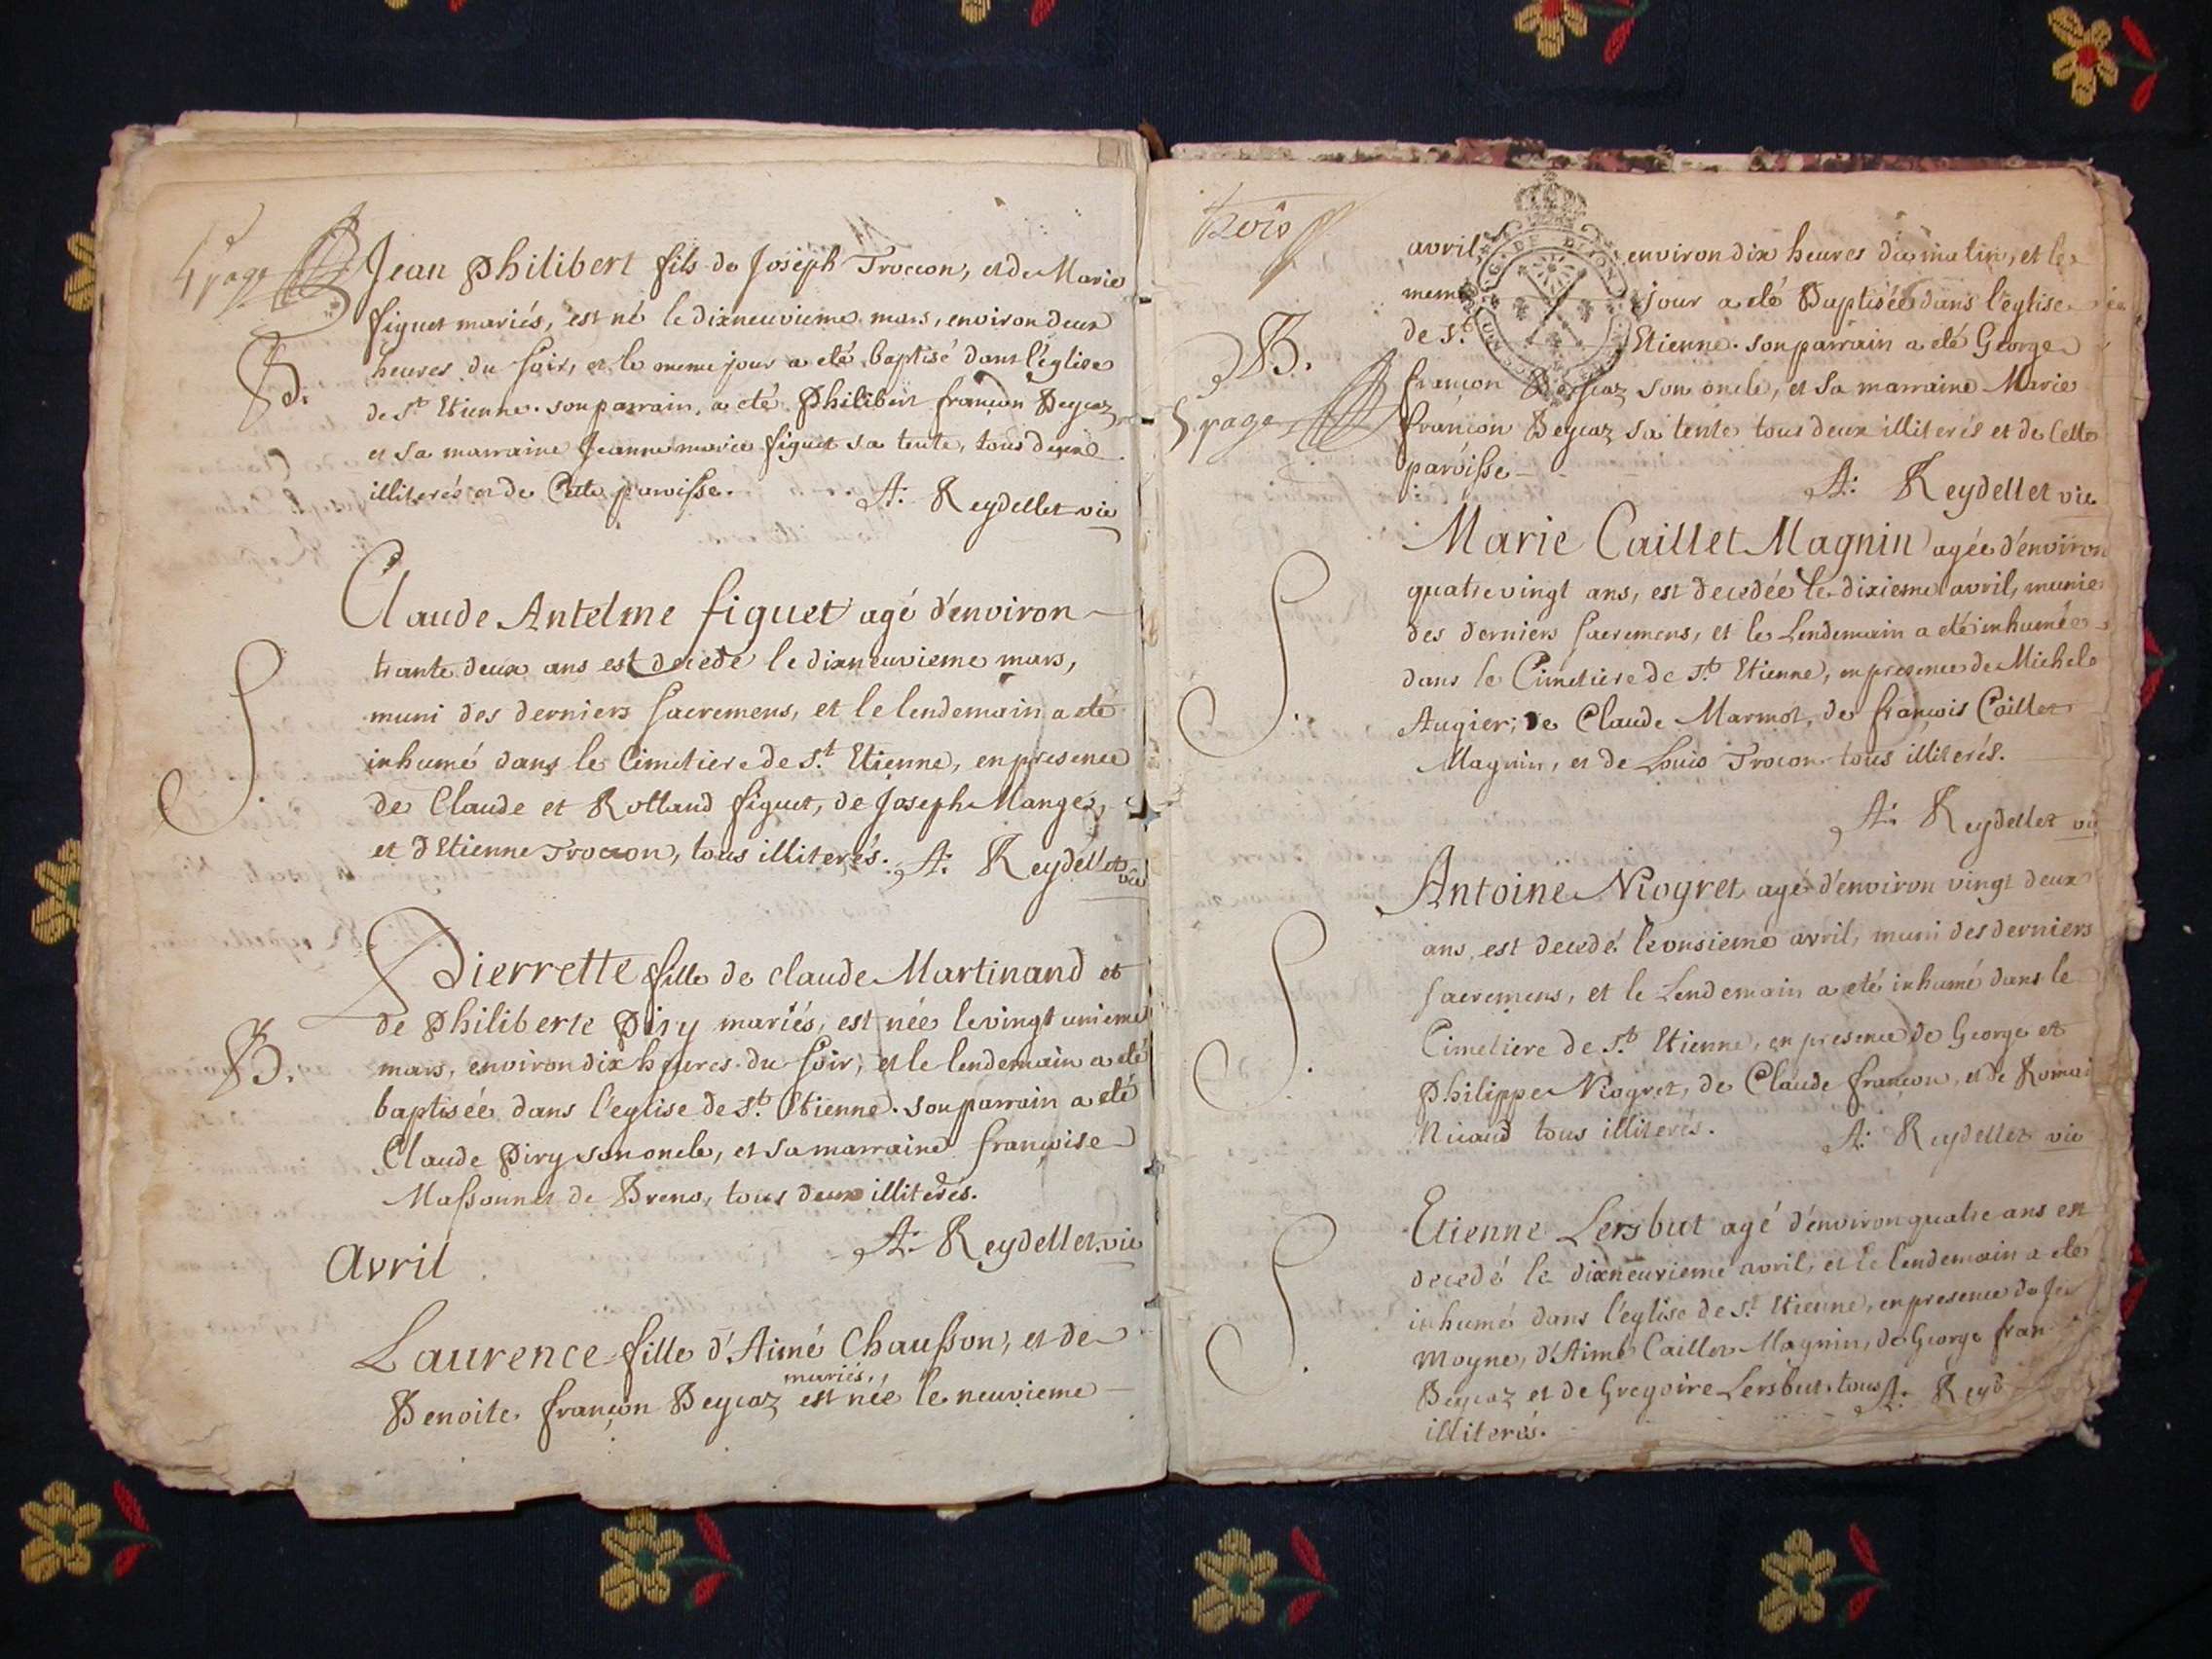 4e page
Jean Philibert fils de Joseph Trocon, et de Marie
figuet mariés, est né le dixneuvieme mars, environ deux
B.
heures du soir, et le meme jour a eté baptisé dans l'église
de St. Etienne. son parrain, a eté Philibert françon Deycaz
et sa marraine Jeanne marie figuet sa tente, tous deux
illiterés et de Cette paroisse. A: Reydellet vic
Claude Antelme figuet agé d'environ
trante deux ans est decedé le dixneuvieme mars,
S.
muni des derniers sacremens, et le lendemain a eté
inhumé dans le Cimetiere de St. Etienne, en presence
de Claude et Rolland figuet, de Joseph Manges,
et d'Etienne Trocon, tous illiterés. A: Reydellet vic
Pierrette fille de claude Martinand et
de Philiberte Piry mariés, est née le vingt unieme
B.
mars, environ dix heures du soir, et le lendemain a eté
baptisée dans l'eglise de St. Etienne. son parrain a eté
Claude Piry son oncle, et sa marraine françoise
Massonnet de Breno, tous deux illiterés.
A: Reydellet vic
Avril
Laurence fille d'Aimé Chausson, et de
mariés,
Benoite françon Deycaz est née le neuvieme
trois
avril environ dix heures du matin, et le
meme jour a eté Baptisée dans l'église
B.
de St. Etienne. son parrain a eté George
françon Deycaz son oncle, et sa marraine Marie
5 page
françon Deycaz sa tente tous deux illiterés et de Cette
paroisse
A: Reydellet vic
Marie Caillet Magnin agée d'environ
quatre vingt ans, est decedée le dixieme avril, munie
S.
des derniers sacremens, et le Lendemain a eté inhumée
dans le Cimetiere de St. Etienne, en presence de Michel
Augier, de Claude Marmot, de françois Caillet
Magnin, et de Louis Trocon tous illiterés.
A: Reydellet vic
Antoine Niogret agé d'environ vingt deux
ans, est decedé le onsieme avril, muni des derniers
S.
sacremens, et le Lendemain a eté inhumé dans le
Cimetiere de St. Etienne, en presence de George et
Philippe Niogret, de Claude françon, et de Romai
Nicaud tous illiterés. A: Reydellet vic
Etienne Lersbut agé d'environ quatre ans est
S.
decedé le dixneuvieme avril, et le lendemain a eté
inhumé dans l'église de St. Etienne, en presence de
Moyne, d'Aimé Caillet Magnin, de George fran
Deycaz et de Gregoire Lersbut tous A: Reyd
illiterés.